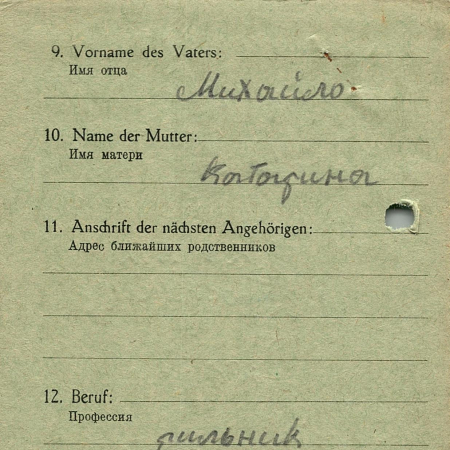 9. Vorname des Vaters:
Имя отца
Михайло
10. Name der Mutter:
Имя матери
Катарина
11. Anschrift der nächsten Angehörigen:
Адрес ближайших родственников
12. Beruf:
Профессия
рильник